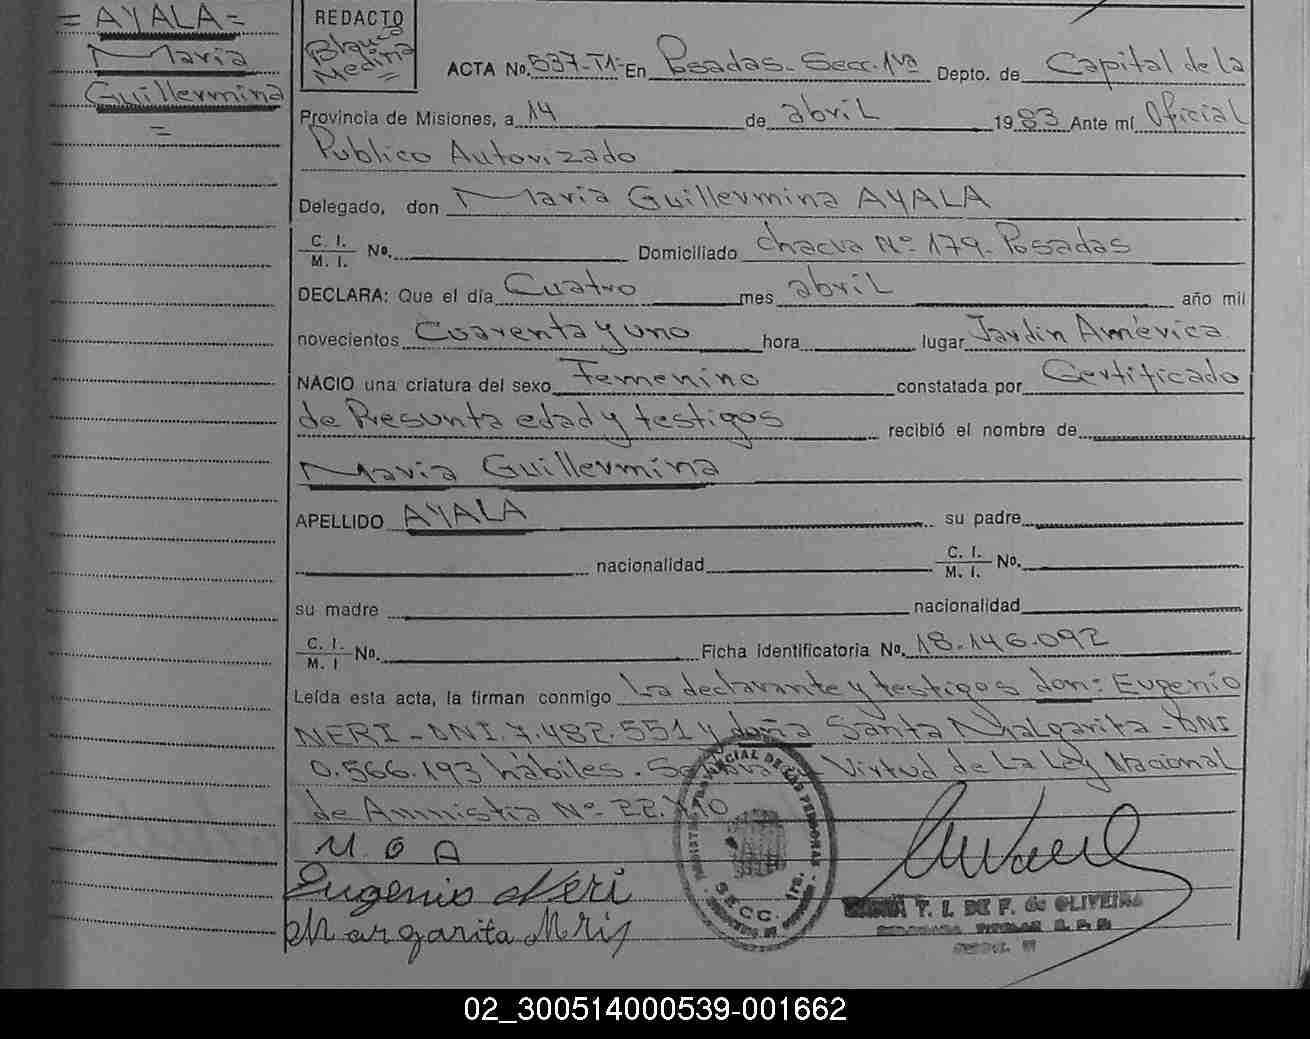 = AYALA =
Maria
Guillermina
=
REDACTO
Blanca
Medina
=
ACTA No. 537-T1- En Posadas - Secc. 1ra Depto. de Capital de la
Provincia de Misiones, a 14 de abril 1983 Ante mí Oficial
Publico Autorizado
Delegado, don Maria Guillermina AYALA
C. I.
M. I. No. Domiciliado chacra Nº 179 - Posadas
DECLARA: Que el día Cuatro mes abril año mil
novecientos Cuarenta y uno hora lugar Jardin América
NACIO una criatura del sexo Femenino constatada por Certificado
de Presunta edad y testigos recibió el nombre de
Maria Guillermina
APELLIDO AYALA su padre
nacionalidad C. I.
M. I. No.
su madre nacionalidad
C. I.
M. I No. Ficha Identificatoria No. 18.146.092
Leída esta acta, la firman conmigo La declarante y testigos don: Eugenio
NERI - DNI. 7.482.551 y doña Santa Margarita - DNI
0.566.193 hábiles. Virtud de La Ley Nacional
de Amnistia Nº 22.
M G A
Eugenio Neri
Margarita
REGISTRO PROVINCIAL DE LAS PERSONAS
SECC. 1ra.
T. I. DE F. de OLIVEIRA
02_300514000539-001662